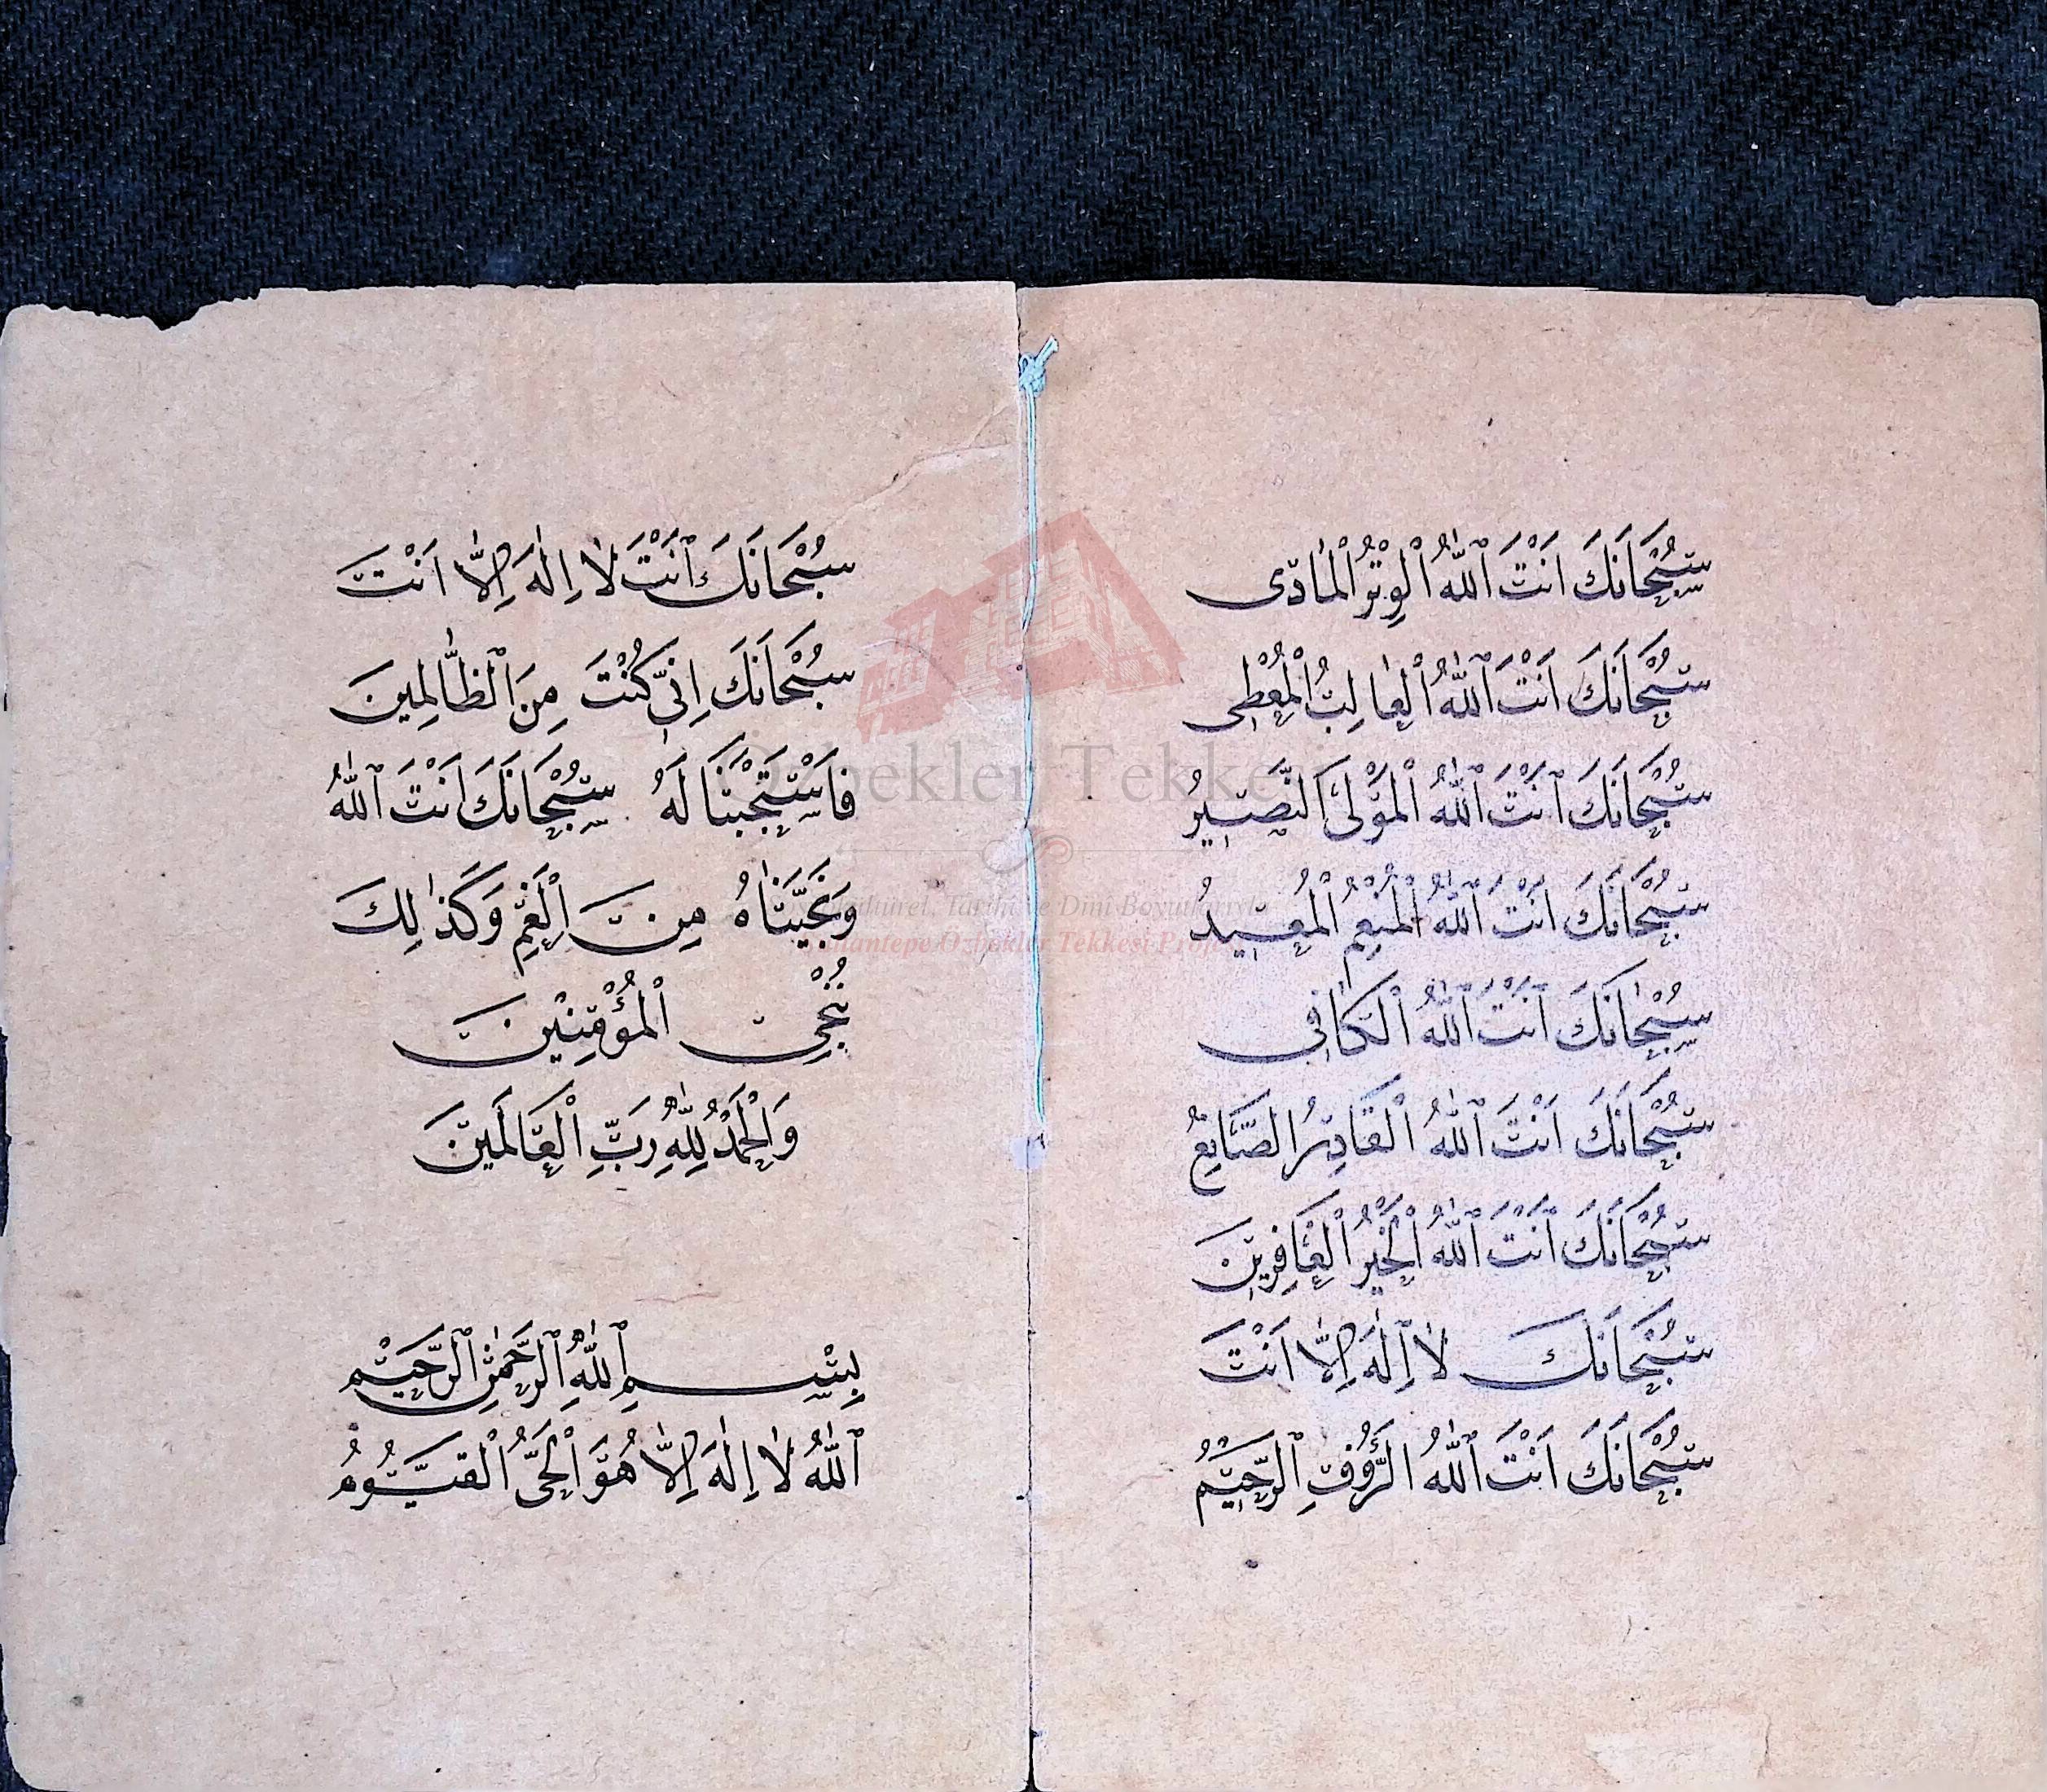 سُبْحَانَكَ اَنْتَ ٱللّٰهُ ٱلْوِتْرُ الْهَادِى
سُبْحَانَكَ اَنْتَ ٱللّٰهُ ٱلْغَالِبُ الْمُعْطِى
سُبْحَانَكَ ٱَنْتَ ٱللّٰهُ ٱلْمَوْلَى النَّصِيرُ
سُبْحَانَكَ اَنْتَ ٱللّٰهُ ٱلْمُنْعِمُ الْمُعِيدُ
سُبْحَانَكَ ٱَنْتَ ٱللّٰهُ الْكَافِى
سُبْحَانَكَ اَنْتَ ٱللّٰهُ الْقَادِرُ الصَّانِعُ
سُبْحَانَكَ ٱَنْتَ ٱللّٰهُ ٱلْخَيْرُ الْغَافِرِينَ
سُبْحَانَكَ لَا اِلٰهَ اِلَّا اَنْتَ
سُبْحَانَكَ اَنْتَ ٱللّٰهُ الرَّؤُفِ ٱلرَّحِيمُ
سُبْحَانَكَ ٱَنْتَ لَا اِلٰهَ اِلَّا اَنْتَ
سُبْحَانَكَ اِنِّى كُنْتُ مِنَ ٱلظَّالِمِينَ
فَاسْتَجَبْنَا لَهُ سُبْحَانَكَ اَنْتَ ٱللّٰهُ
وَنَجَّيْنَاهُ مِنَ ٱلْغَمِّ وَكَذٰلِكَ
نُنْجِى ٱلْمُؤْمِنِيْنَ
وَالْحَمْدُ لِلّٰهِ رَبِّ ٱلْعَالَمِينَ
بِسْمِ ٱللّٰهِ ٱلرَّحْمٰنِ ٱلرَّحِيْمِ
ٱللّٰهُ لَا اِلٰهَ اِلَّا هُوَ ٱلْحَىُّ ٱلْقَيُّومُ
Özbekler Tekkesi
Tarihi ve Dini Boyutlarıyla
Sultantepe Özbekler Tekkesi Projesi